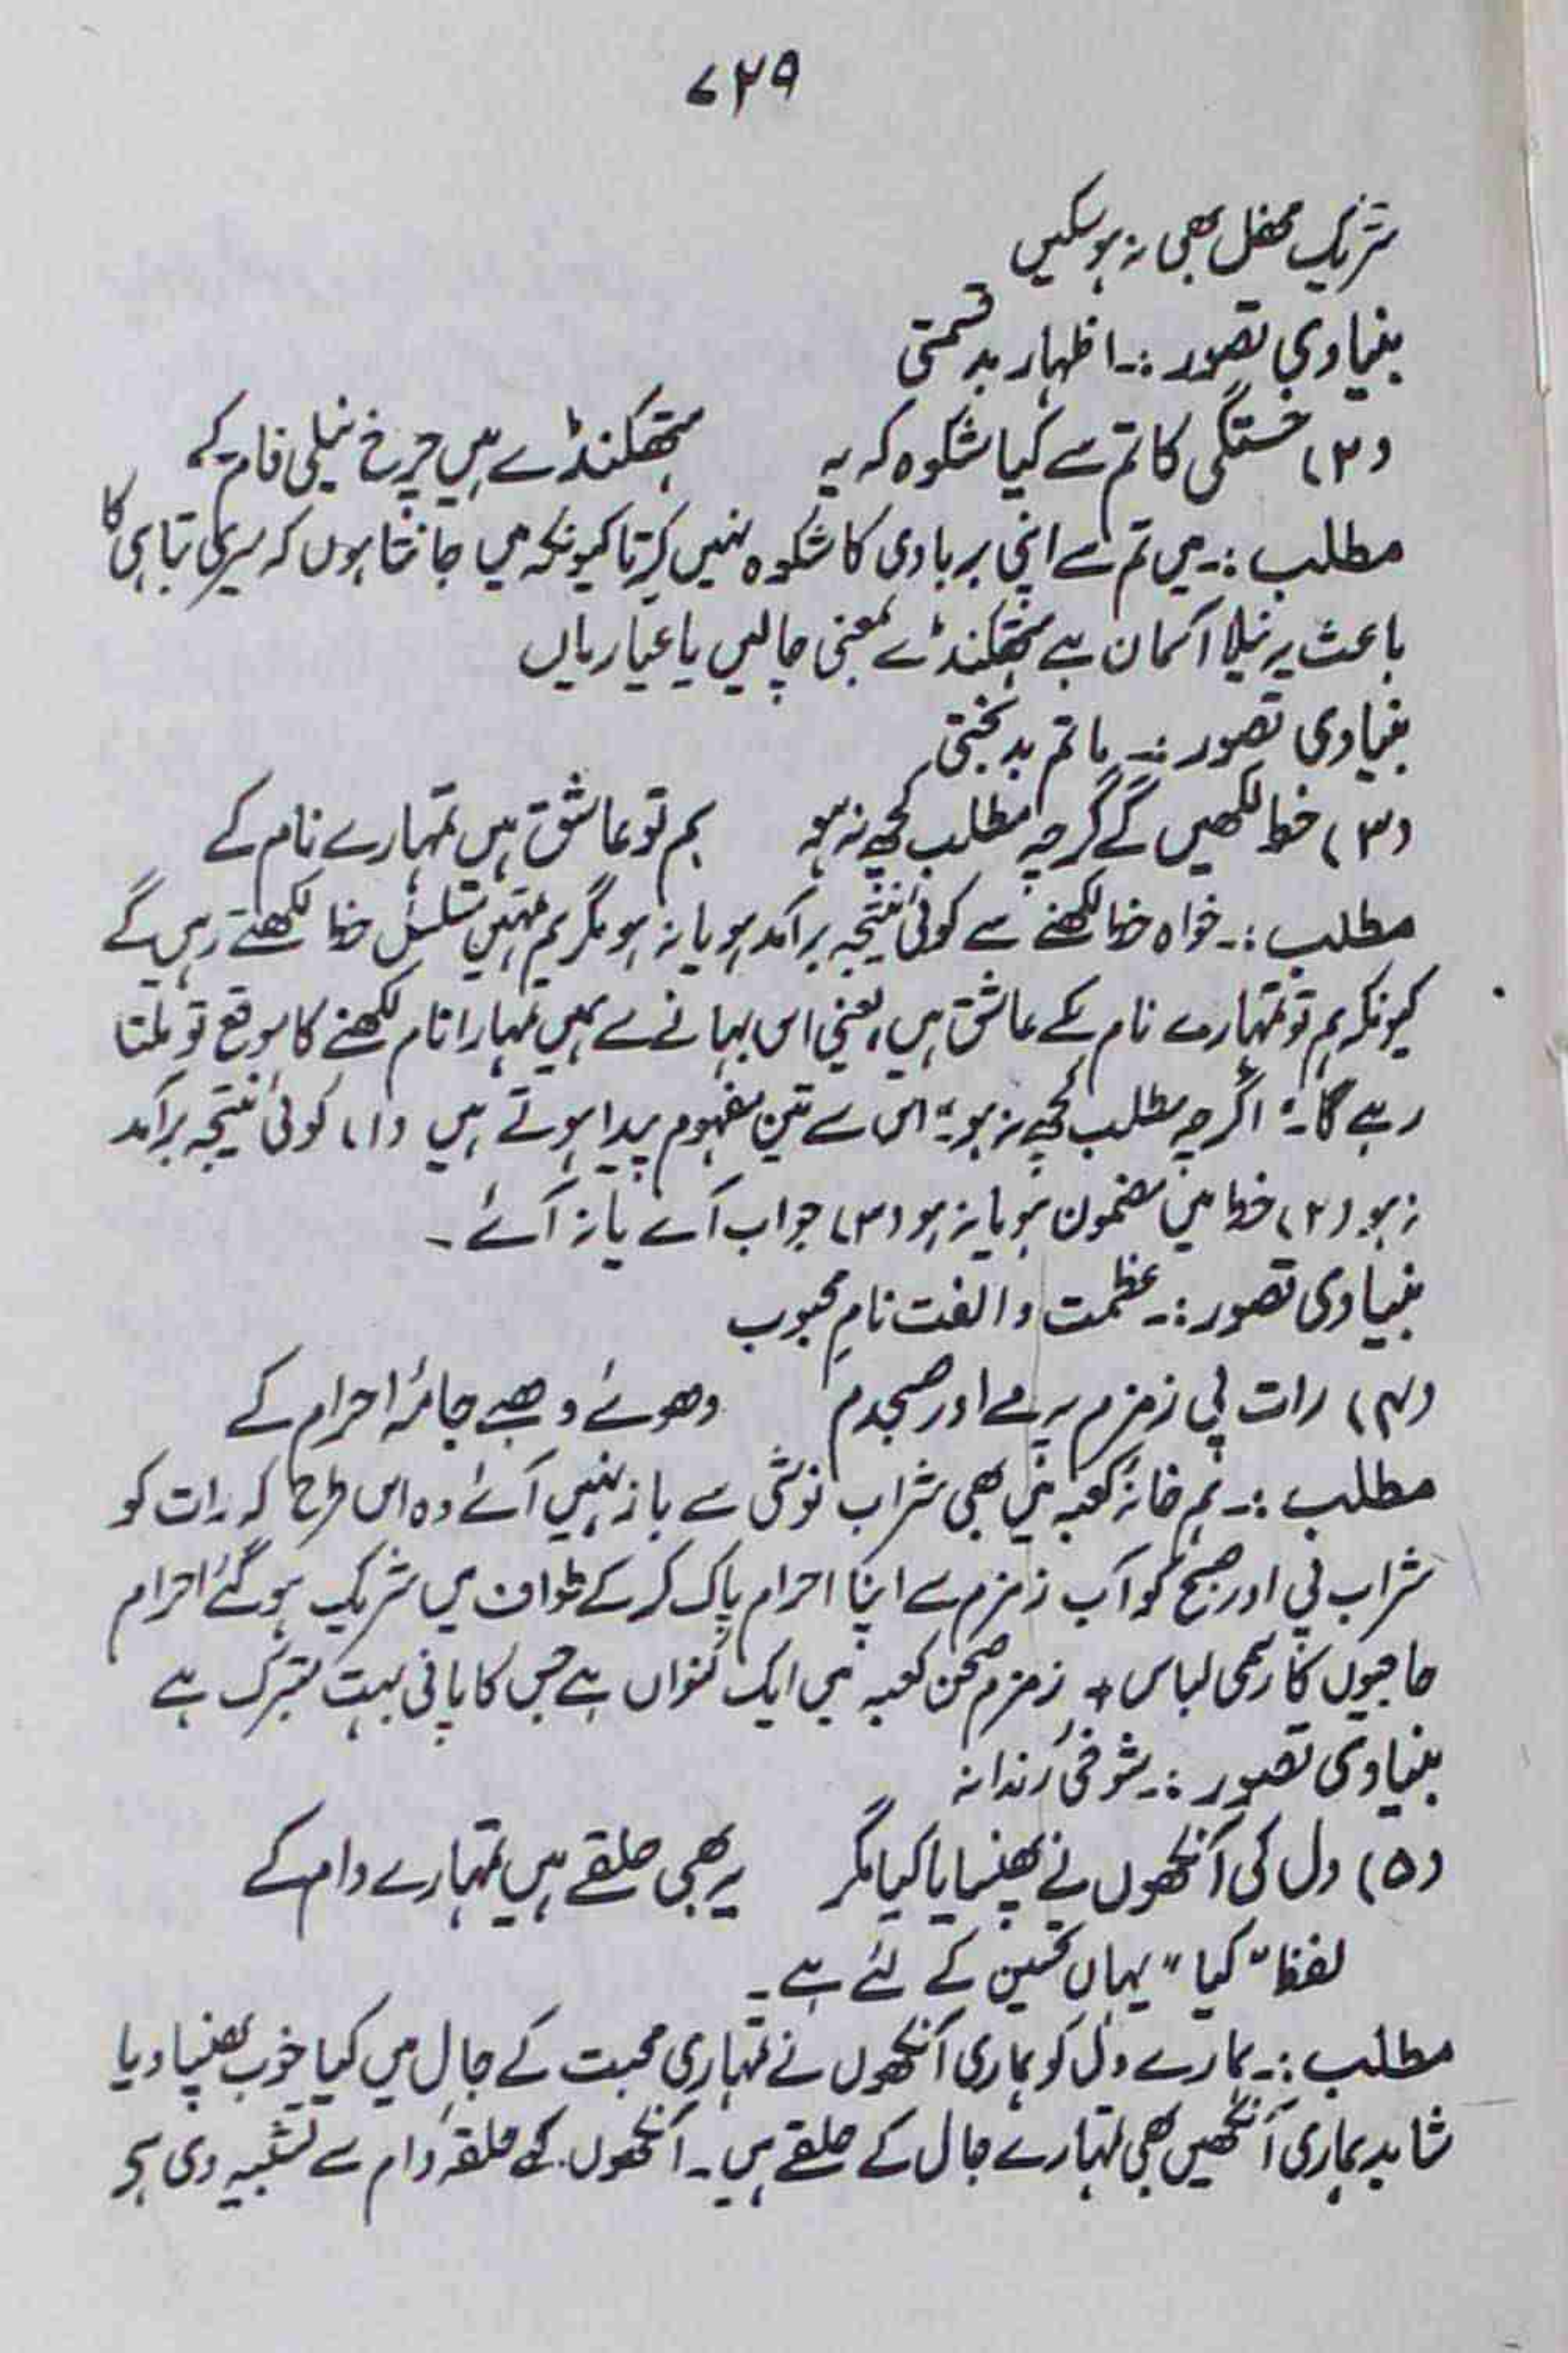 ۷۲۹
شریک محفل بھی نہ ہو سکیں
بنیادی تصور :۔ اظہار بدقسمتی
(۲) خستگی کا تم سے کیا شکوہ کہ یہ ہتھکنڈے ہیں چرخ نیلی فام کے
مطلب :۔ میں تم سے اپنی بربادی کا شکوہ نہیں کرتا کیونکہ میں جانتا ہوں کہ میری تباہی کا
باعث یہ نیلا آسمان ہے ہتھکنڈے بمعنی چالیں یا عیاریاں
بنیادی تصور :۔ ماتم بدبختی
(۳) خط لکھیں گے گرچہ مطلب کچھ نہ ہو ہم تو عاشق ہیں تمہارے نام کے
مطلب :۔ خواہ خط لکھنے سے کوئی نتیجہ برآمد ہو یا نہ ہو مگر ہم تمہیں مسلسل خط لکھتے رہیں گے
کیونکہ ہم تو تمہارے نام کے عاشق ہیں، یعنی اس بہانے سے ہمیں تمہارا نام لکھنے کا موقع تو ملتا
رہے گا۔ "اگرچہ مطلب کچھ نہ ہو" اس سے تین مفہوم پیدا ہوتے ہیں (۱) کوئی نتیجہ برآمد
نہ ہو (۲) خط میں مضمون ہو یا نہ ہو (۳) جواب آئے یا نہ آئے ۔
بنیادی تصور :۔ عظمت و الفت نامِ محبوب
(۴) رات پی زمزم پہ مے اور صبحدم دھوئے دھبے جامۂ احرام کے
مطلب :۔ ہم خانۂ کعبہ میں بھی شراب نوشی سے باز نہیں آئے وہ اس طرح کہ رات کو
شراب پی اور صبح کو آب زمزم سے اپنا احرام پاک کر کے طواف میں شریک ہو گئے احرام
حاجیوں کا رسمی لباس + زمزم صحن کعبہ میں ایک کنواں ہے جس کا پانی بہت متبرک ہے
بنیادی تصور :۔ شوخیٔ رندانہ
(۵) دل کی آنکھوں نے پھنسایا کیا مگر یہ بھی حلقے ہیں تمہارے دام کے
لفظ "کیا" یہاں تحسین کے لئے ہے ۔
مطلب :۔ ہمارے دل کو ہماری آنکھوں نے تمہاری محبت کے جال میں کیا خوب پھنسا دیا
شاید ہماری آنکھیں بھی تمہارے جال کے حلقے ہیں ۔ آنکھوں کی حلقۂ دام سے تشبیہ دی ہے